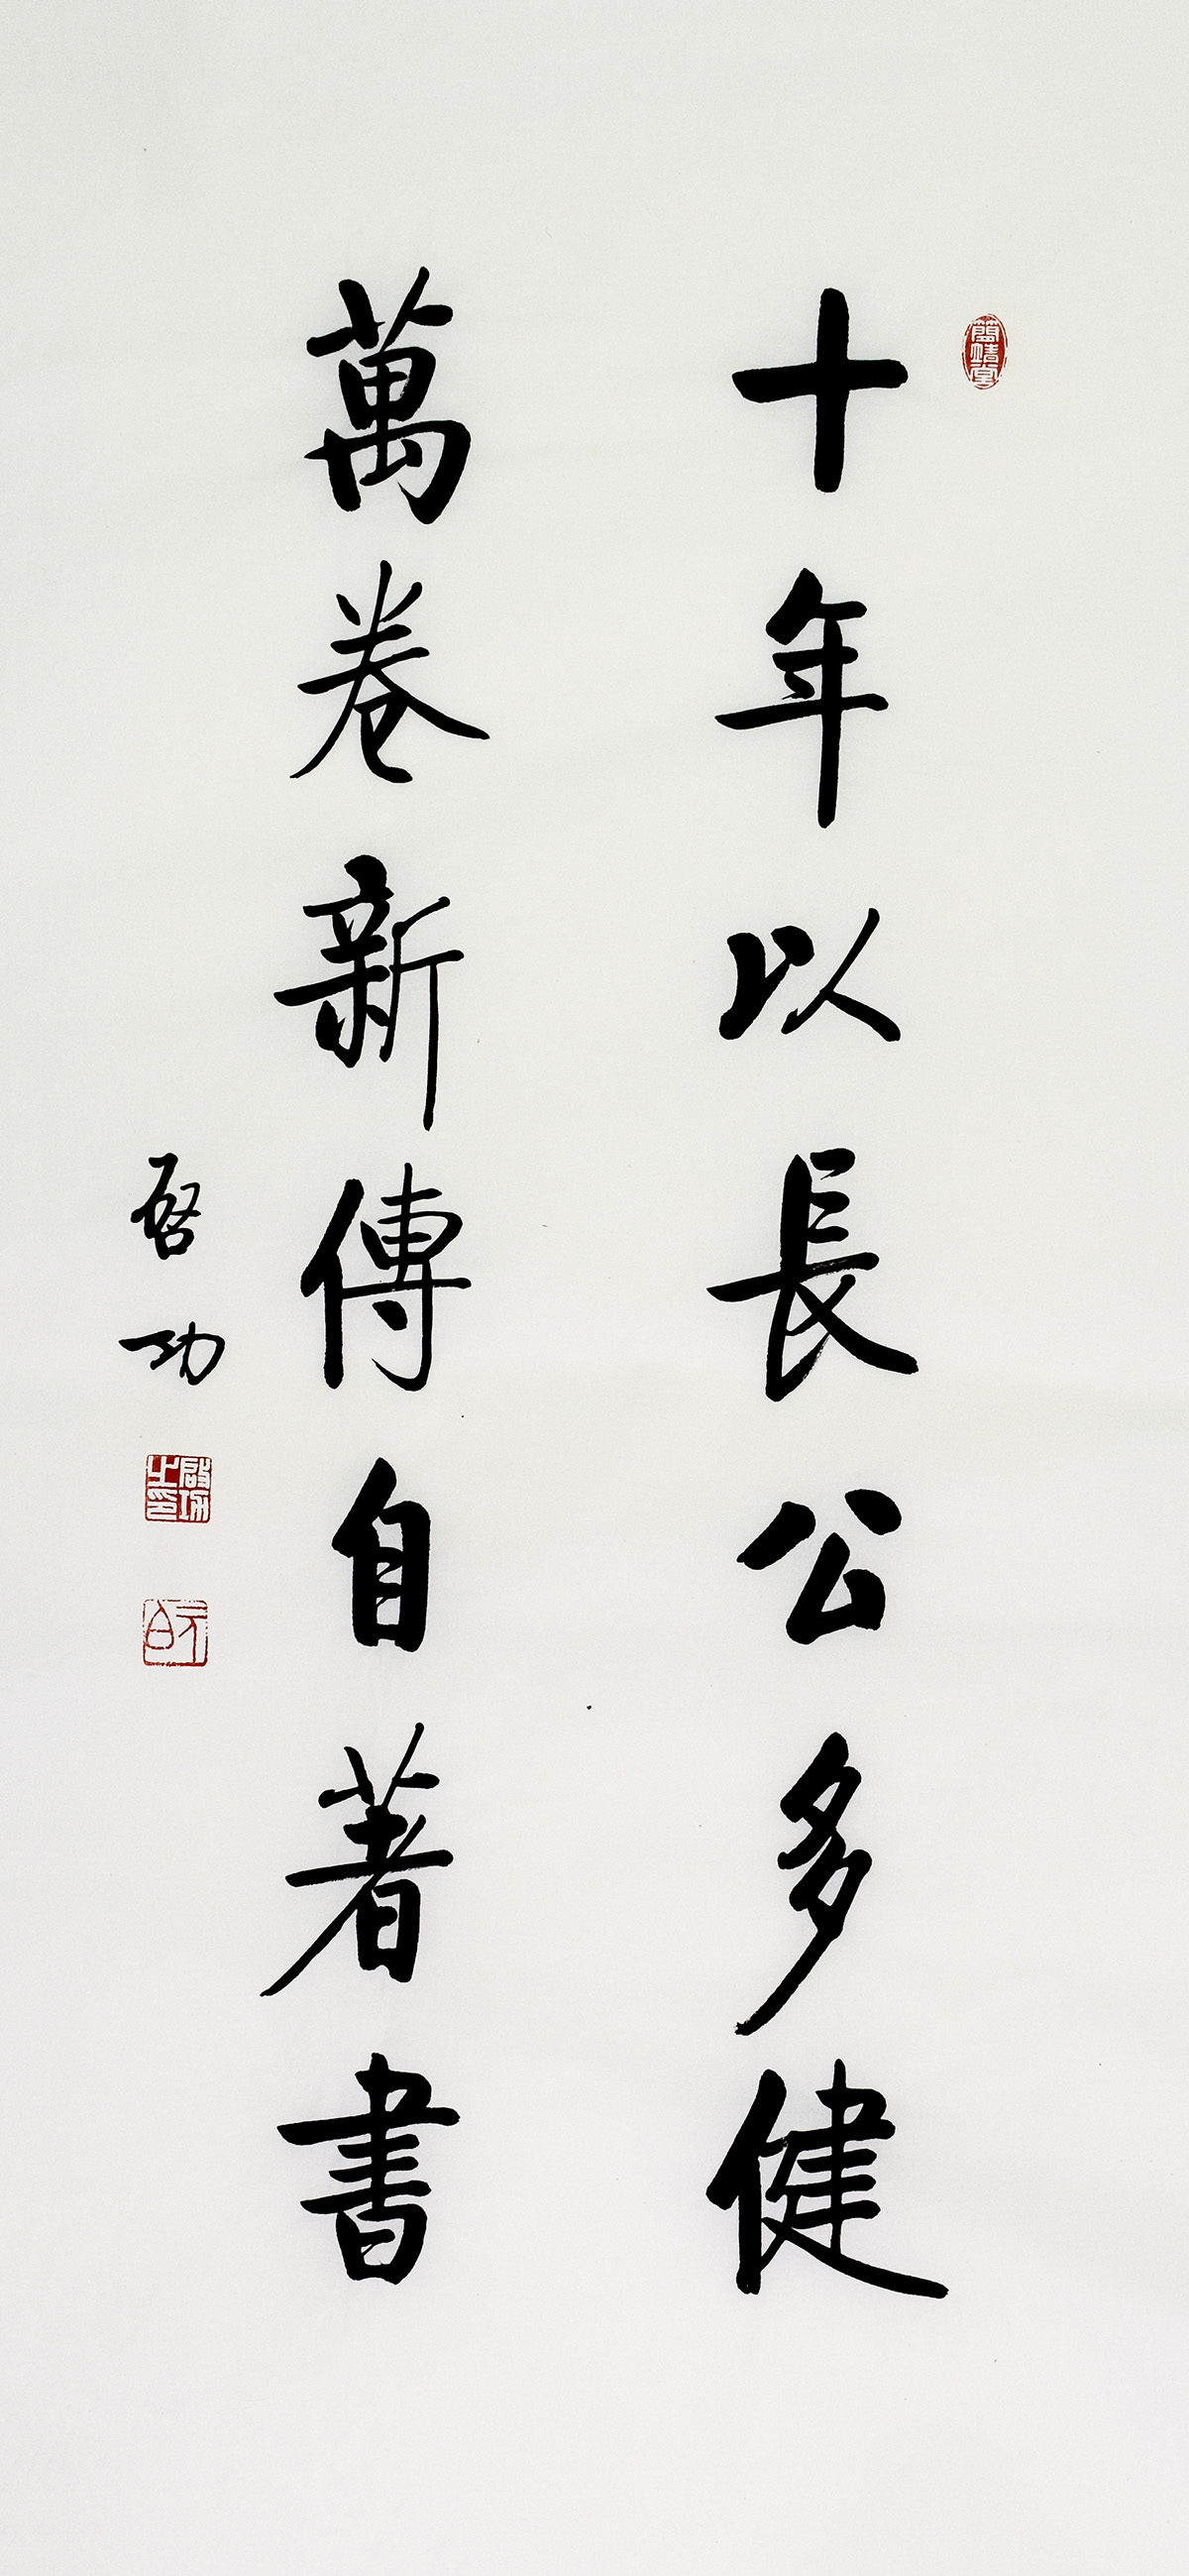 簡靖堂
十年以長公多健
萬卷新傳自著書
啓功
啟功之印
元白